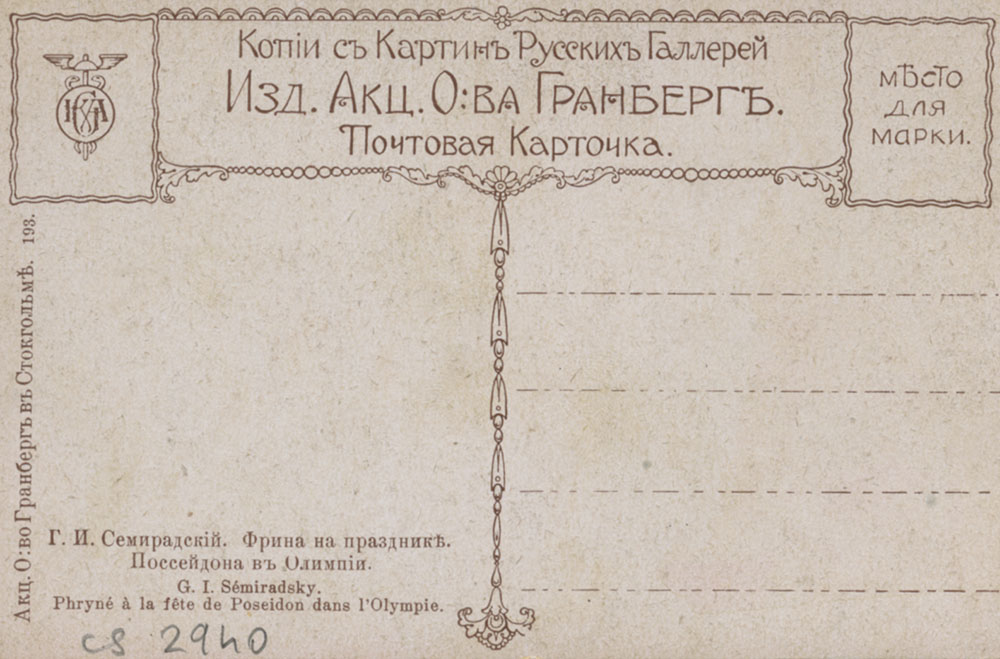 Копіи съ Картинъ Русскихъ Галлерей
Изд. Акц. О:ва Гранбергъ.
Почтовая Карточка.
мѣсто
для
марки.
Акц. О:во Гранбергъ въ Стокгольмѣ. 193.
Г. И. Семирадскій. Фрина на праздникѣ.
Поссейдона въ Олимпіи.
G. I. Sémiradsky.
Phryné à la fête de Poseidon dans l'Olympie.
cs 2940